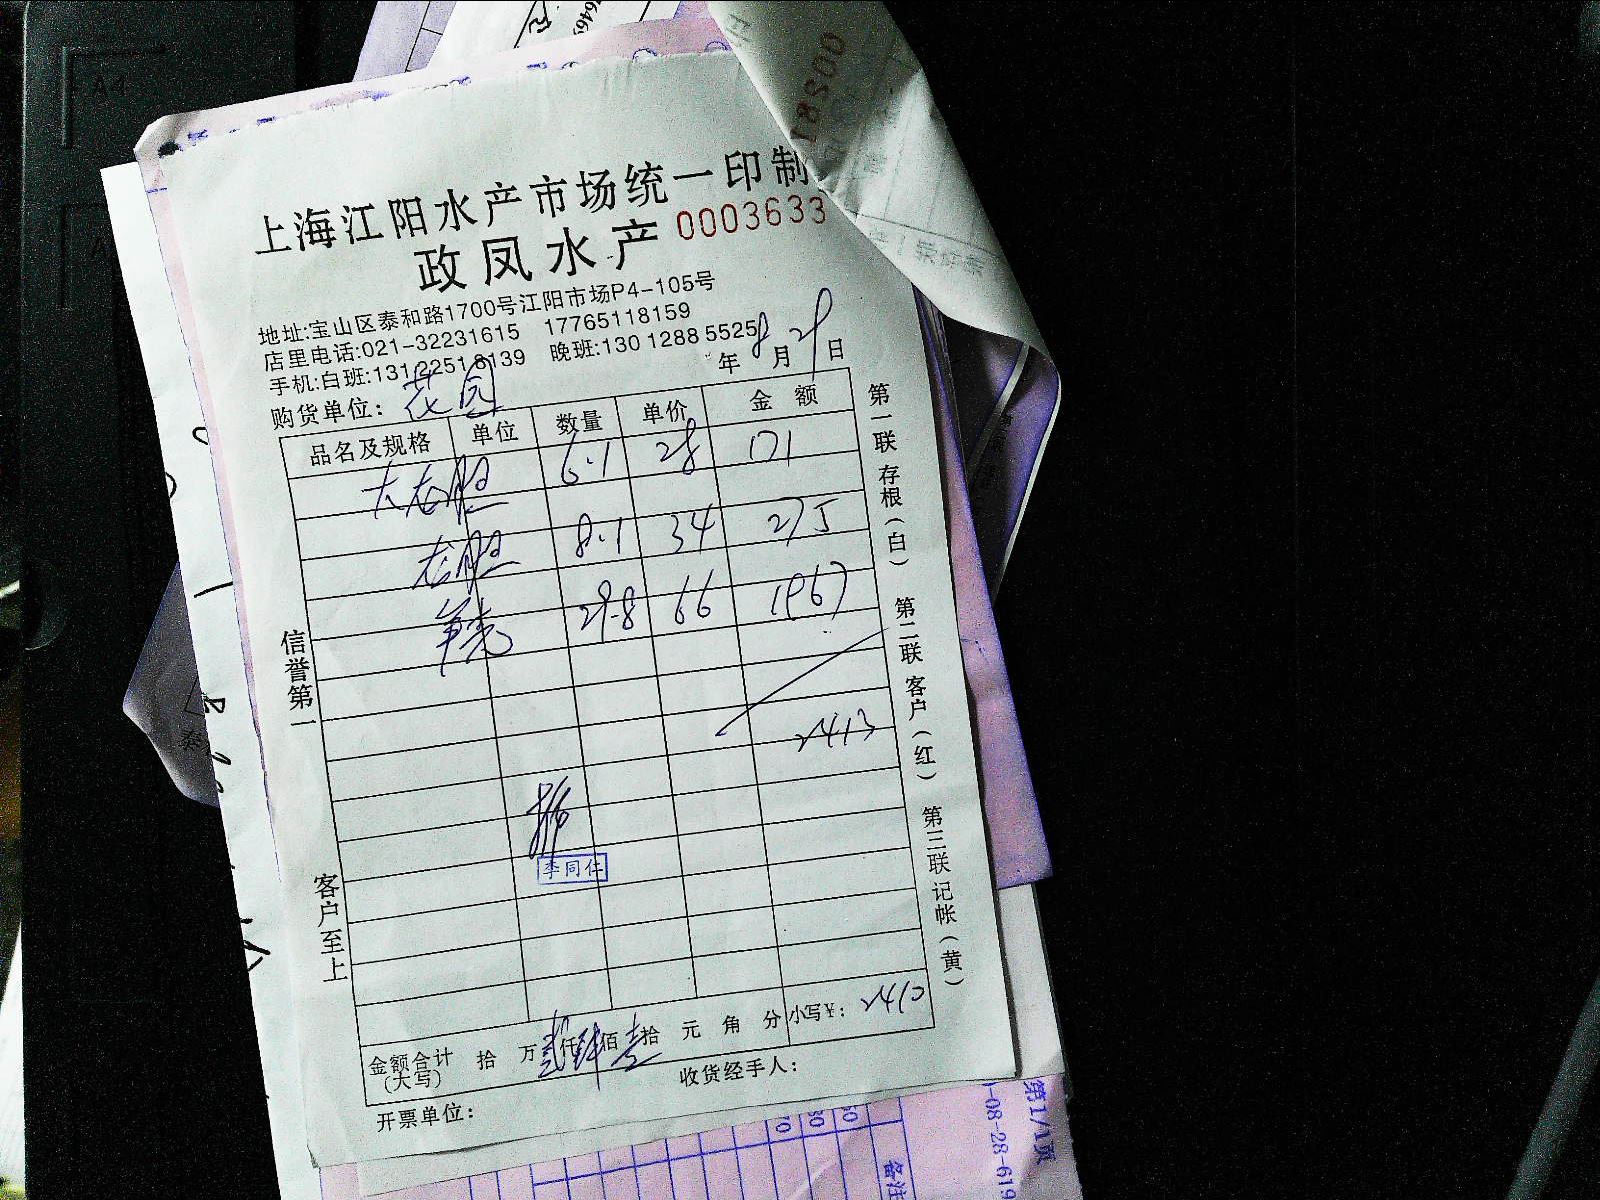 上海江阳水产市场统一印制
政凤水产 0003633
地址:宝山区泰和路1700号江阳市场P4-105号
店里电话:021-32231615 17765118159
手机:白班:131 2251 8139 晚班:130 1288 5525
年 8 月 29 日
购货单位: 花园
品名及规格 单位 数量 单价 金额
大龙胆 6.1 28 171
龙胆 8.1 34 275
29.8 66 1967
2413
李同仁
金额合计 拾 万 贰 仟 肆 佰 壹 拾 元 角 分 小写¥: 2410
(大写)
开票单位: 收货经手人:
信誉第一
客户至上
第一联存根(白)
第二联客户(红)
第三联记帐(黄)
A4
第1/1页
-08-28-619
备注